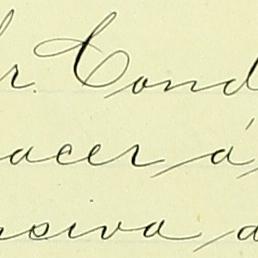 r. Cond
acer á
nsiva a